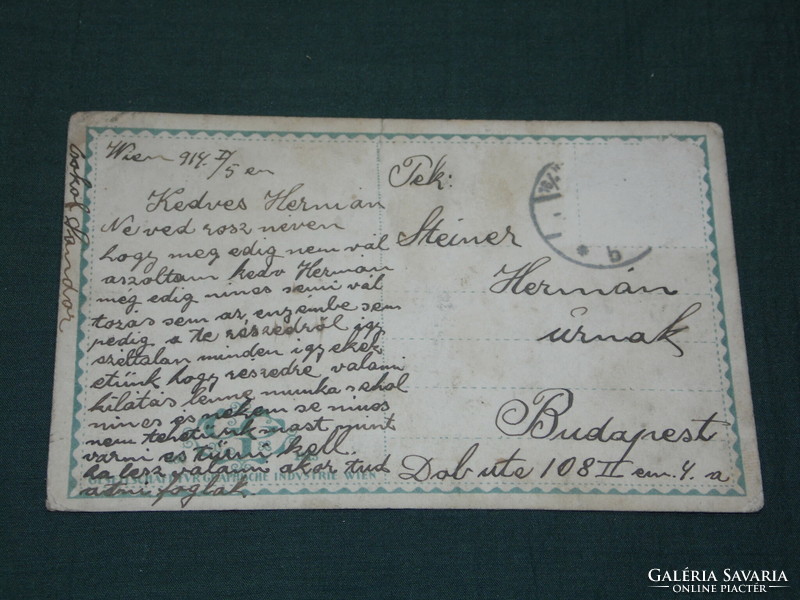 Wien 914 II/5 en
Kedves Hermán
Ne ved rosz néven
hogy meg edig nem vál
aszoltam kedv Hermán
meg edig nincs semi vál
tozás sem az enyémbe sem
pedig a te részedről így
széltalan minden igyekez
etünk hogy részedre valami
kilátás lenne munka sehol
nincs és nekem se nincs
nem tehetünk mast mint
varni es türni kell
ha lesz valami akor tud
atni foglak
Sandor
Tek:
Steiner
Hermán
úrnak
Budapest
Dob utc 108 II em. 4. a
b
GESELLSCHAFT FÜR GRAPHISCHE INDVSTRIE WIEN
GALÉRIA SAVARIA
ONLINE PIACTÉR